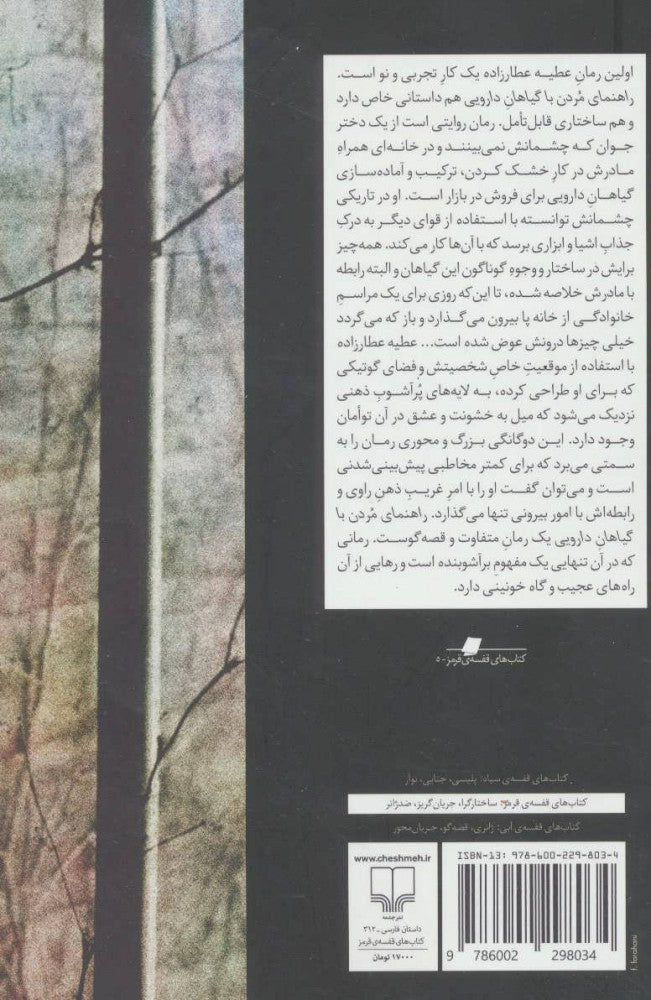 اولین رمانِ عطیه عطارزاده یک کارِ تجربی و نو است.
راهنمای مُردن با گیاهانِ دارویی هم داستانی خاص دارد
و هم ساختاری قابل‌تأمل. رمان روایتی است از یک دختر
جوان که چشمانش نمی‌بینند و در خانه‌ای همراه
مادرش در کارِ خشک کردن، ترکیب و آماده‌سازی
گیاهانِ دارویی برای فروش در بازار است. او در تاریکی
چشمانش توانسته با استفاده از قوای دیگر به درکِ
جذابِ اشیا و ابزاری برسد که با آن‌ها کار می‌کند. همه‌چیز
برایش در ساختار و وجوهِ گوناگون این گیاهان و البته رابطه
با مادرش خلاصه شده، تا این که روزی برای یک مراسمِ
خانوادگی از خانه پا بیرون می‌گذارد و باز که می‌گردد
خیلی چیزها درونش عوض شده است... عطیه عطارزاده
با استفاده از موقعیتِ خاصِ شخصیتش و فضای گوتیکی
که برای او طراحی کرده، به لایه‌های پُرآشوبِ ذهنی
نزدیک می‌شود که میل به خشونت و عشق در آن توأمان
وجود دارد. این دوگانگی بزرگ و محوری رمان را به
سمتی می‌برد که برای کمتر مخاطبی پیش‌بینی‌شدنی
است و می‌توان گفت او را با امرِ غریبِ ذهنِ راوی و
رابطه‌اش با امور بیرونی تنها می‌گذارد. راهنمای مُردن با
گیاهان دارویی یک رمانِ متفاوت و قصه‌گوست. رمانی
که در آن تنهایی یک مفهومِ برآشوبنده است و رهایی از آن
راه‌های عجیب و گاه خونینی دارد.
کتاب‌های قفسه‌ی قرمز-۵
کتاب‌های قفسه‌ی سیاه: پلیسی، جنایی، نوآر
کتاب‌های قفسه‌ی قرمز: ساختارگرا، جریان‌گریز، ضدژانر
کتاب‌های قفسه‌ی آبی: ژانری، قصه‌گو، جریان‌محور
www.cheshmeh.ir
نشرچشمه
داستان فارسی-۳۱۲
کتاب‌های قفسه‌ی قرمز
۱۷۰۰۰ تومان
ISBN-13: 978-600-229-803-4
9 786002 298034
f. farahani